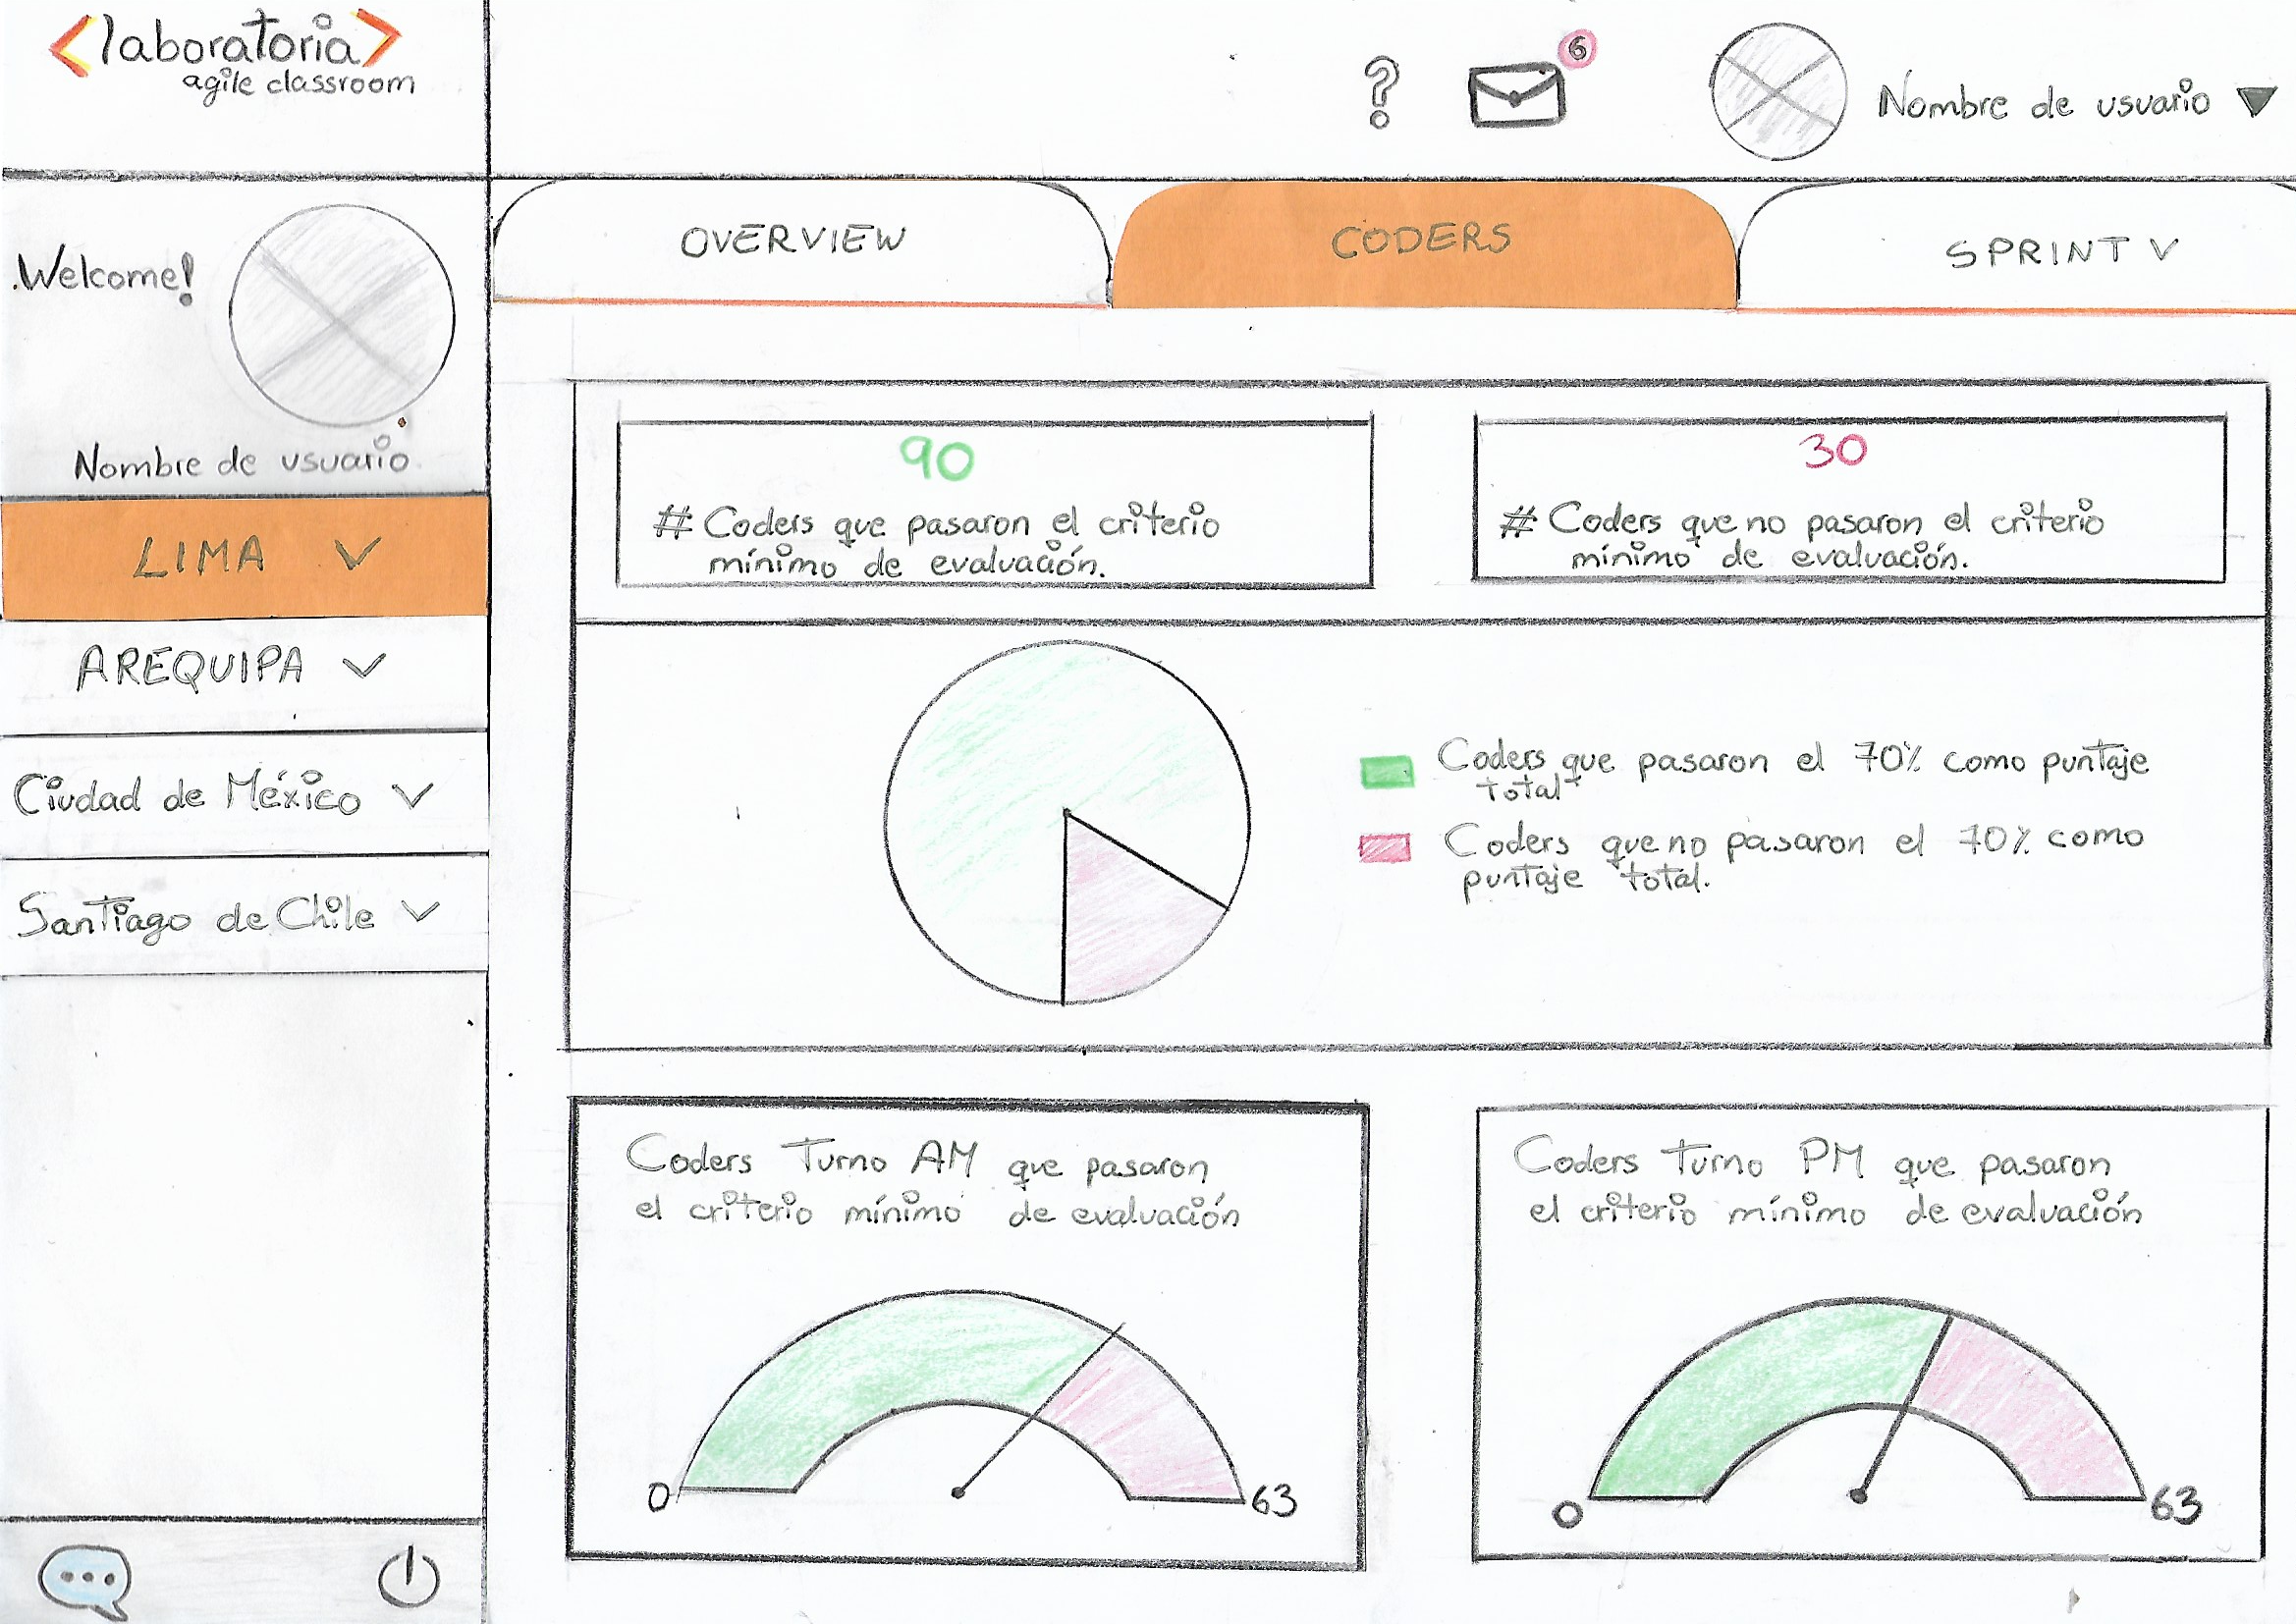 <laboratoria>
agile classroom
?
6
Nombre de usuario
OVERVIEW
CODERS
SPRINT
Welcome!
Nombre de usuario
LIMA
AREQUIPA
Ciudad de México
Santiago de Chile
90
# Coders que pasaron el criterio
mínimo de evaluación.
30
# Coders que no pasaron el criterio
mínimo de evaluación.
Coders que pasaron el 70% como puntaje
total
Coders que no pasaron el 70% como
puntaje total.
Coders Turno AM que pasaron
el criterio mínimo de evaluación
0
63
Coders Turno PM que pasaron
el criterio mínimo de evaluación
0
63